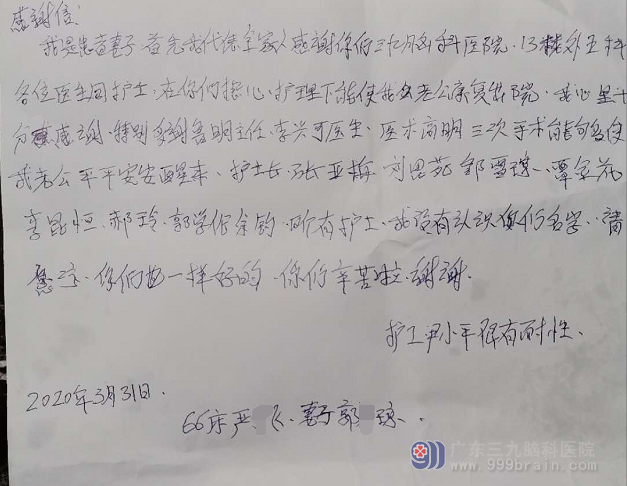 感谢信
我是患者妻子 首先我代表全家人感谢你们三九脑科医院.13楼外五科
各位医生同护士.在你们担心.护理下能使我女老公康复出院.我心里十
分感谢.特别多谢鲁明主任.李兴可医生.医术高明三次手术能够使
我老公平平安安醒来.护士长.张亚梅 刘思苑 邹雪琪、谭金花
李昆恒.郝玲.郭学 余钧.所有护士.我没有认识你们名字.请
你们也一样好的.你们辛苦啦.谢谢.
护工尹小平很有耐性.
2020年3月31日.
66床严 飞.妻子郭 琼.
广东三九脑科医院
www.999brain.com